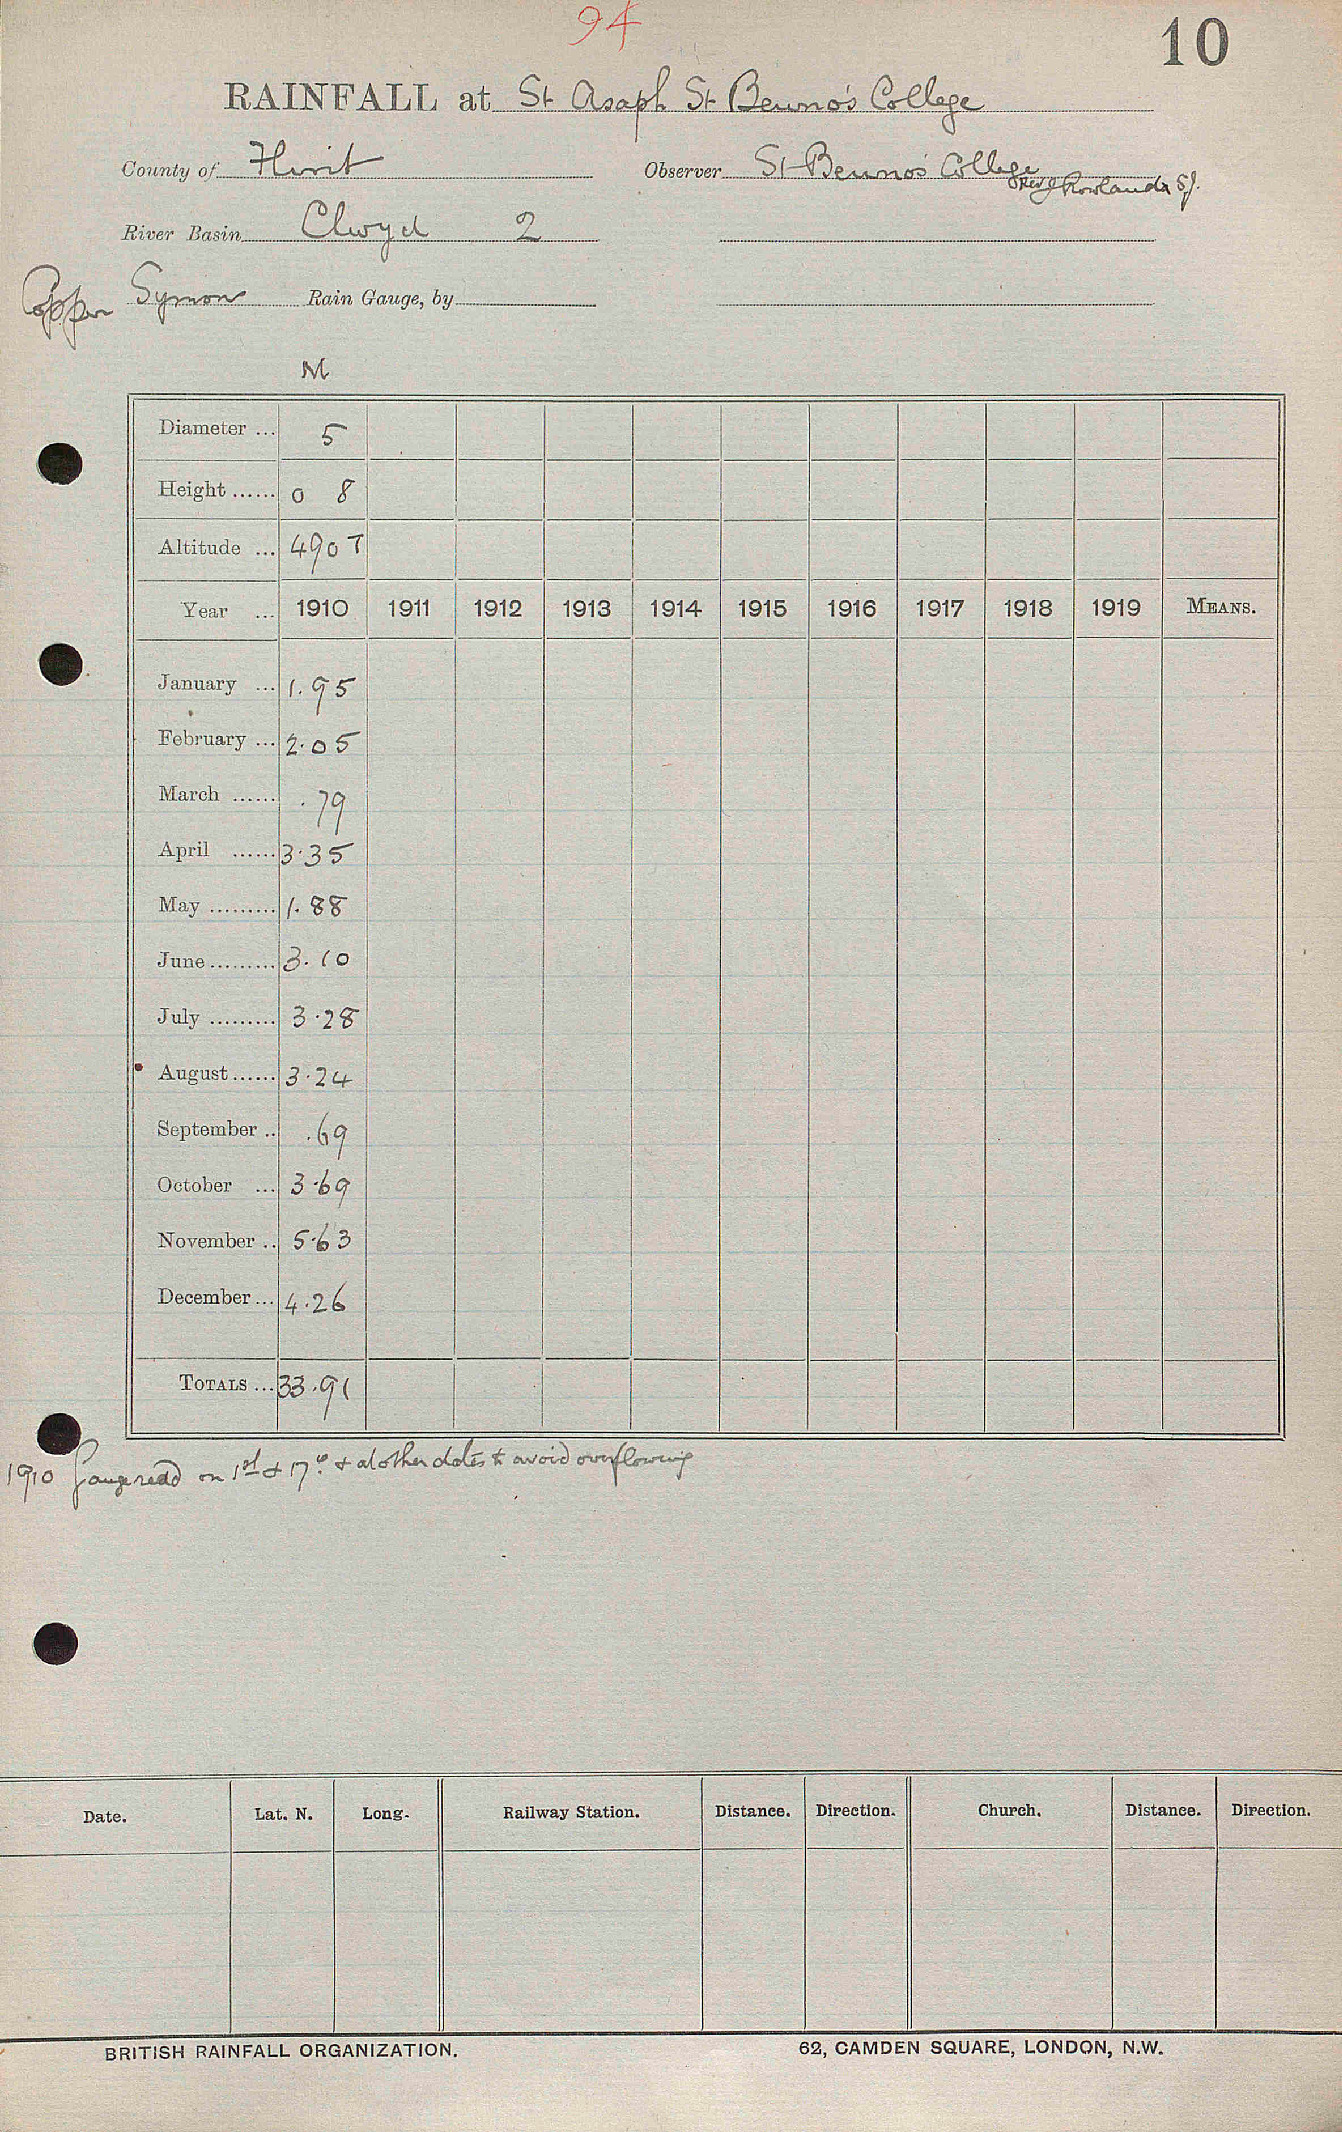 94
10
RAINFALL at St Asaph St Beuno's College
County of Flint Observer St Beuno's College
(Rev J Rowlands SJ.
River Basin Clwyd 2
Copper Symons Rain Gauge, by
M
Diameter ... 5
Height ...... 0 8
Altitude ... 490 T
Year ... 1910 1911 1912 1913 1914 1915 1916 1917 1918 1919 MEANS.
January ... 1.95
February ... 2.05
March ...... .79
April ...... 3.35
May ......... 1.88
June ......... 3.10
July ......... 3.28
August ...... 3.24
September .. .69
October ... 3.69
November .. 5.63
December ... 4.26
TOTALS ... 33.91
1910 Gauge read on 1st & 17th & at other dates to avoid overflowing
Date. Lat. N. Long. Railway Station. Distance. Direction. Church. Distance. Direction.
BRITISH RAINFALL ORGANIZATION. 62, CAMDEN SQUARE, LONDON, N.W.